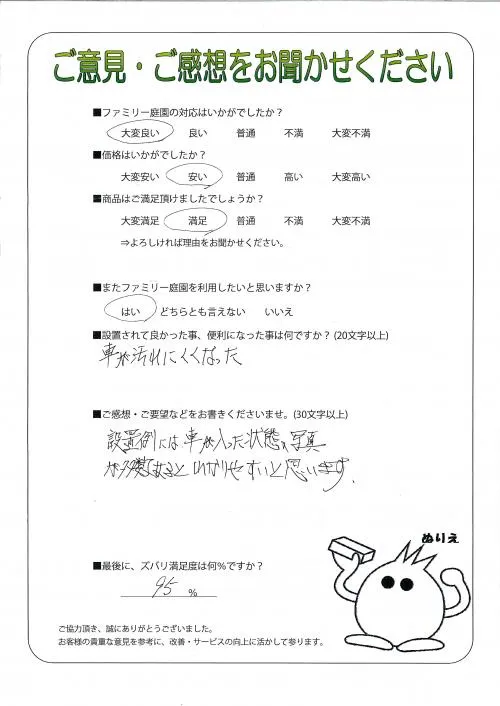 ご意見・ご感想をお聞かせください
■ファミリー庭園の対応はいかがでしたか？
大変良い 良い 普通 不満 大変不満
■価格はいかがでしたか？
大変安い 安い 普通 高い 大変高い
■商品はご満足頂けましたでしょうか？
大変満足 満足 普通 不満 大変不満
⇒よろしければ理由をお聞かせください。
■またファミリー庭園を利用したいと思いますか？
はい どちらとも言えない いいえ
■設置されて良かった事、便利になった事は何ですか？(20文字以上)
車が汚れにくくなった
■ご感想・ご要望などをお書きくださいませ。(30文字以上)
設置例には車が入った状態の写真
が あると わかりやすいと思います。
ぬりえ
■最後に、ズバリ満足度は何％ですか？
95 %
ご協力頂き、誠にありがとうございました。
お客様の貴重な意見を参考に、改善・サービスの向上に活かして参ります。